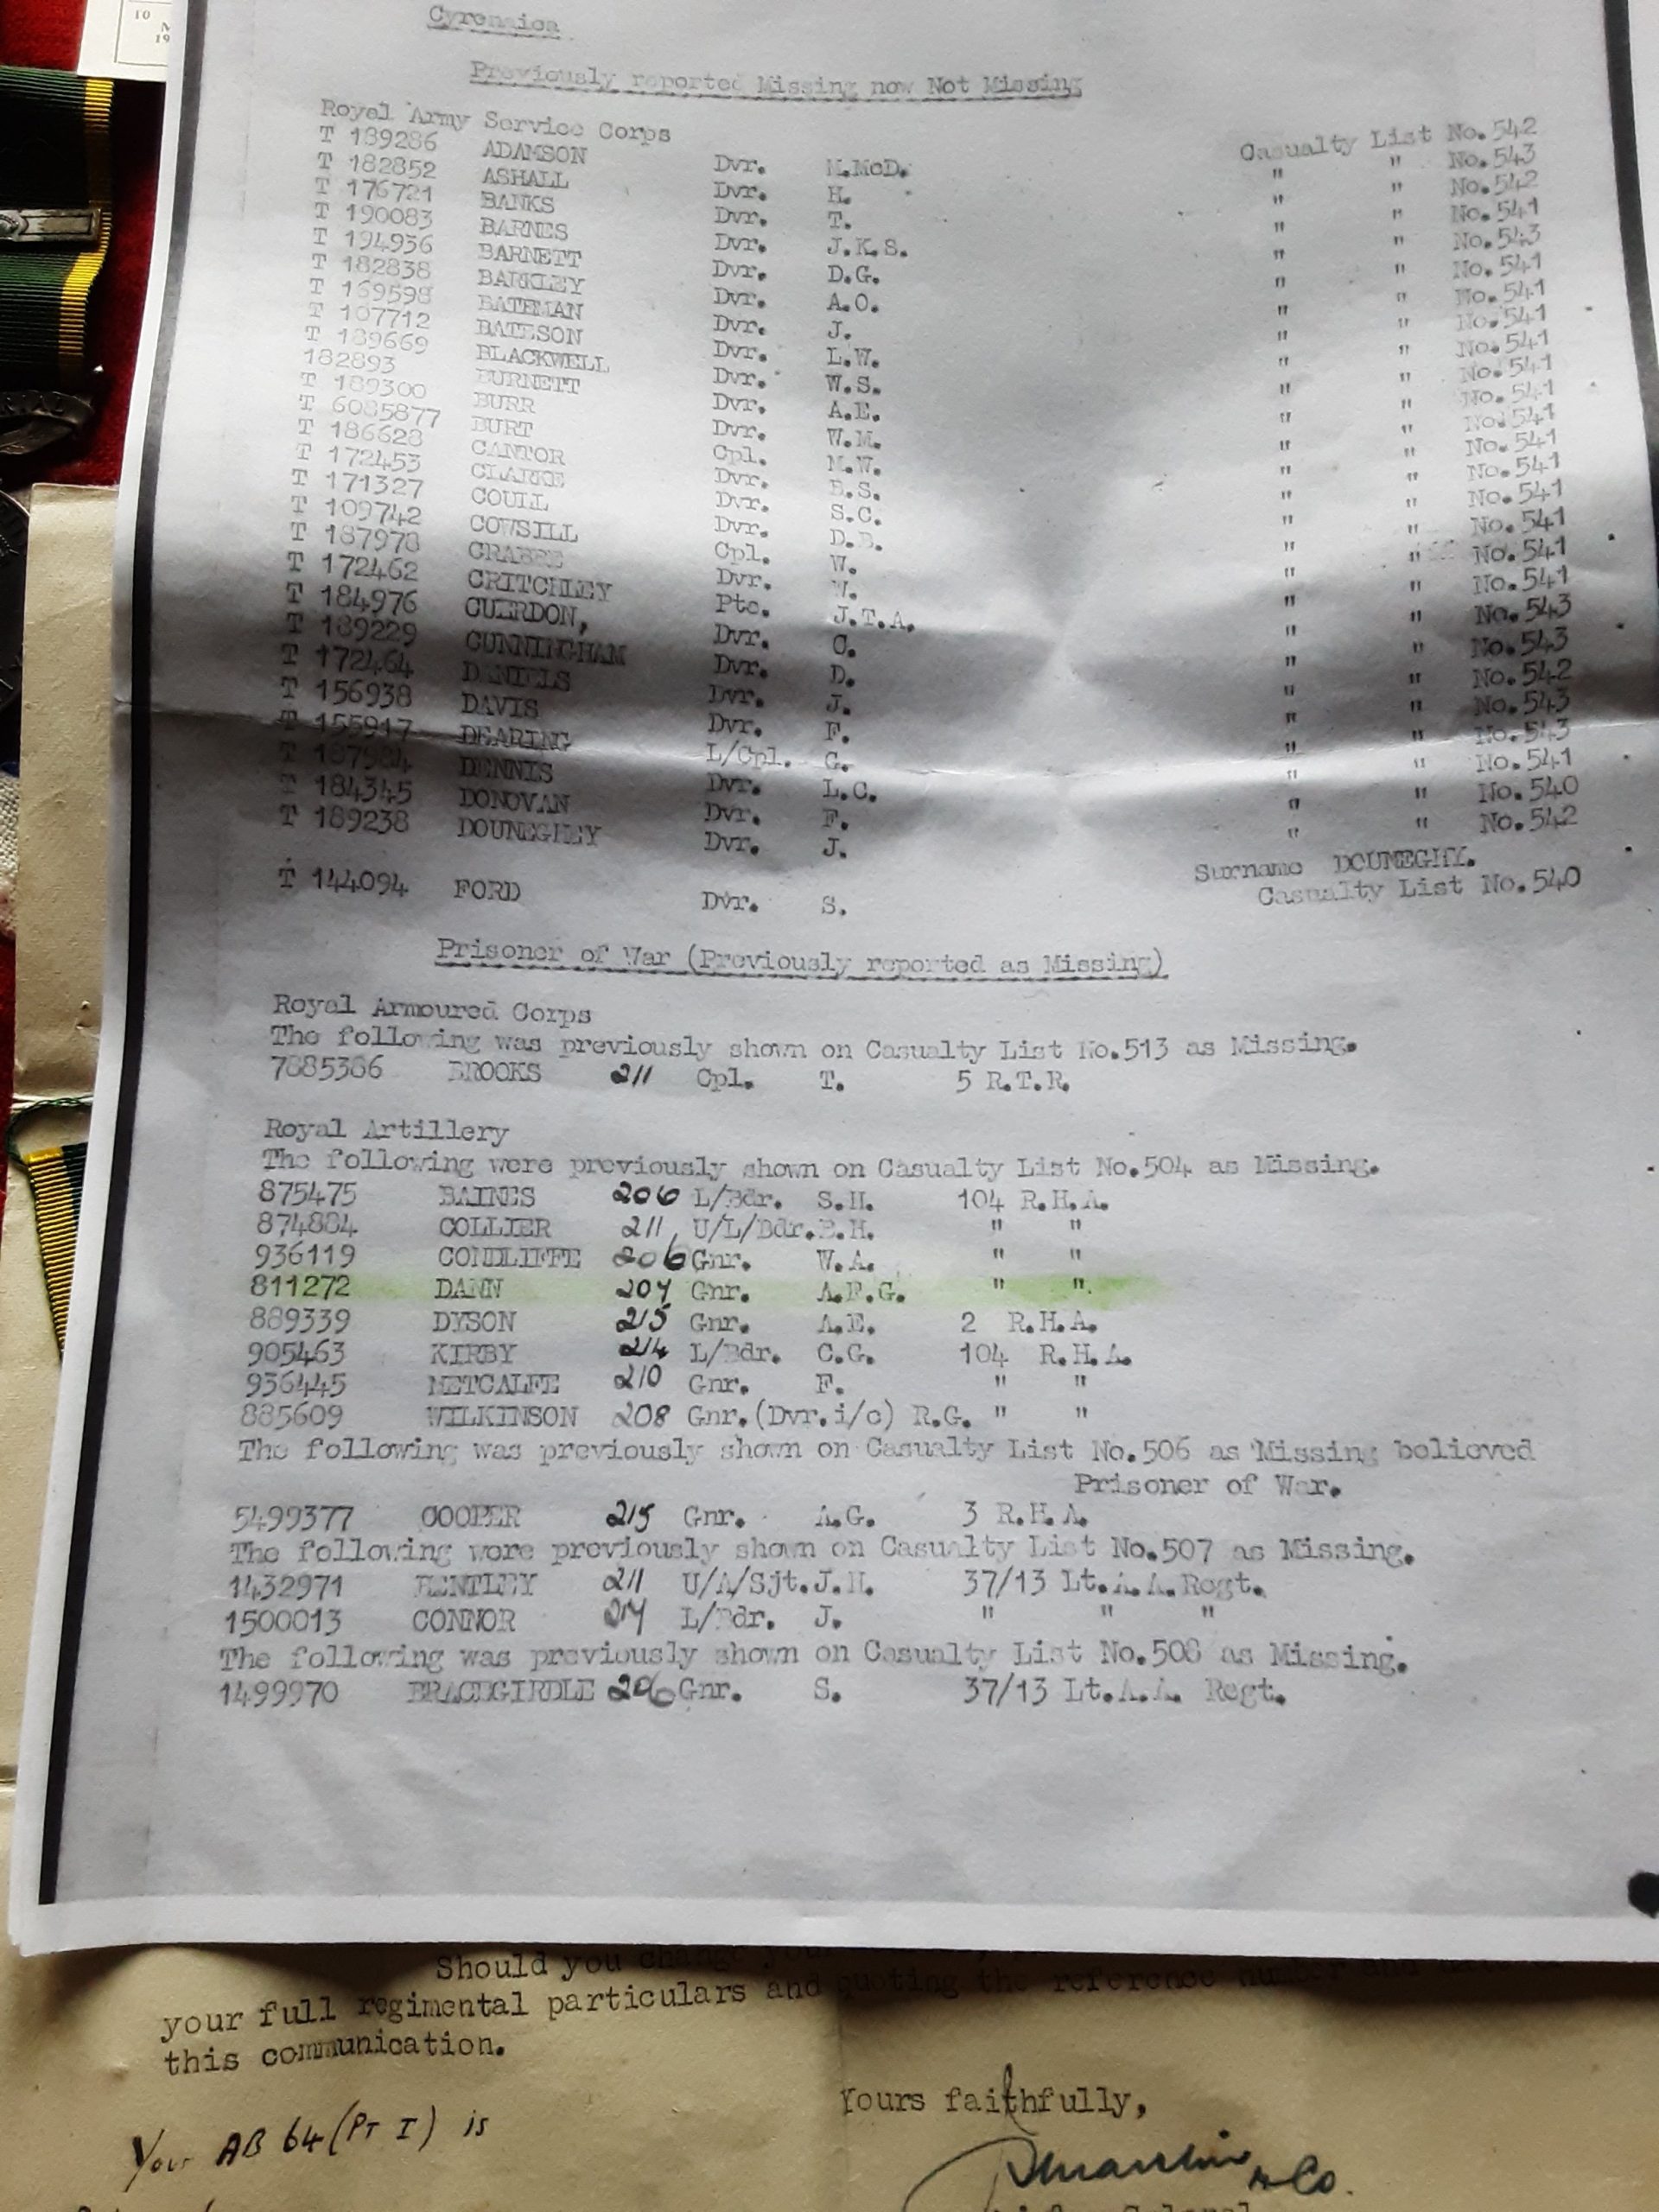 10
19
Cyrenaica
Previously reported Missing now Not Missing
Royal Army Service Corps
T 189286 ADAMSON Dvr. M.McD. Casualty List No.542
T 182852 ASHALL Dvr. H. " " No.543
T 176721 BANKS Dvr. T. " " No.542
T 190083 BARNES Dvr. J.K.S. " " No.541
T 194936 BARNETT Dvr. D.G. " " No.543
T 182838 BARKLEY Dvr. A.O. " " No.541
T 169598 BATEMAN Dvr. J. " " No.541
T 107712 BATESON Dvr. L.W. " " No.541
T 189669 BLACKWELL Dvr. W.S. " " No.541
182893 BURNETT Dvr. A.E. " " No.541
T 189300 BURR Dvr. W.M. " " No.541
T 6085877 BURT Cpl. M.W. " " No.541
T 186628 CANTOR Dvr. B.S. " " No.541
T 172453 CLARKE Dvr. S.C. " " No.541
T 171327 COULL Dvr. D.B. " " No.541
T 109742 COWSILL Cpl. W. " " No.541
T 187978 CRABBE Dvr. W. " " No.541
T 172462 CRITCHLEY Pte. J.T.A. " " No.541
T 184976 CUERDON, Dvr. C. " " No.543
T 189229 CUNNINGHAM Dvr. D. " " No.543
T 172464 DANIELS Dvr. J. " " No.542
T 156938 DAVIS Dvr. F. " " No.543
T 155917 DEARING L/Cpl. G. " " No.543
T 187984 DENNIS Dvr. L.C. " " No.541
T 184345 DONOVAN Dvr. F. " " No.540
T 189238 DOUNEGHEY Dvr. J. " " No.542
Surname DOUNEGHY.
T 144094 FORD Dvr. S. Casualty List No.540
Prisoner of War (Previously reported as Missing)
Royal Armoured Corps
The following was previously shown on Casualty List No.513 as Missing.
7885386 BROOKS 211 Cpl. T. 5 R.T.R.
Royal Artillery
The following were previously shown on Casualty List No.504 as Missing.
875475 BAINES 206 L/Bdr. S.H. 104 R.H.A.
874884 COLLIER 211 U/L/Bdr.B.H. " "
936119 CONDLIFFE 206 Gnr. W.A. " "
811272 DANN 207 Gnr. A.F.G. " "
889339 DYSON 215 Gnr. A.E. 2 R.H.A.
905463 KIRBY 214 L/Bdr. C.G. 104 R.H.A.
936445 METCALFE 210 Gnr. F. " "
885609 WILKINSON 208 Gnr.(Dvr.i/c) R.G. " "
The following was previously shown on Casualty List No.506 as Missing believed
Prisoner of War.
5499377 COOPER 215 Gnr. A.G. 3 R.H.A.
The following were previously shown on Casualty List No.507 as Missing.
1432971 BENTLEY 211 U/A/Sjt.J.H. 37/13 Lt.A.A.Regt.
1500013 CONNOR 217 L/Bdr. J. " " "
The following was previously shown on Casualty List No.508 as Missing.
1499970 BRACEGIRDLE 206 Gnr. S. 37/13 Lt.A.A. Regt.
Should you change your
your full regimental particulars and quoting the reference number and
this communication.
Yours faithfully,
Your AB 64 (PT I) is